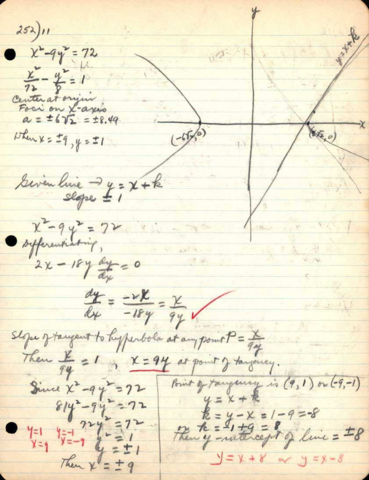 252) 11
x² - 9y² = 72
x²/72 - y²/8 = 1
Center at origin
Foci on x-axis
a = ±6√2 = ±8.49
When x = ±9, y = ±1
y
y = x + k
x
(-6√2, 0)
(6√2, 0)
Given line → y = x + k
Slope ±1
x² - 9y² = 72
Differentiating,
2x - 18y dy/dx = 0
dy/dx = -2x/-18y = x/9y
Slope of tangent to hyperbola at any point P = x/9y
Then x/9y = 1, x = 9y at point of tangency.
Since x² - 9y² = 72
81y² - 9y² = 72
72y² = 72
y² = 1
y = ±1
Then x² = ±9
y=1 y=-1
x=9 x=-9
Point of tangency is (9, 1) or (-9, -1)
y = x + k
k = y - x = 1 - 9 = -8
or k = -1 + 9 = 8
Then y-intercept of line = ±8
y = x + 8 or y = x - 8